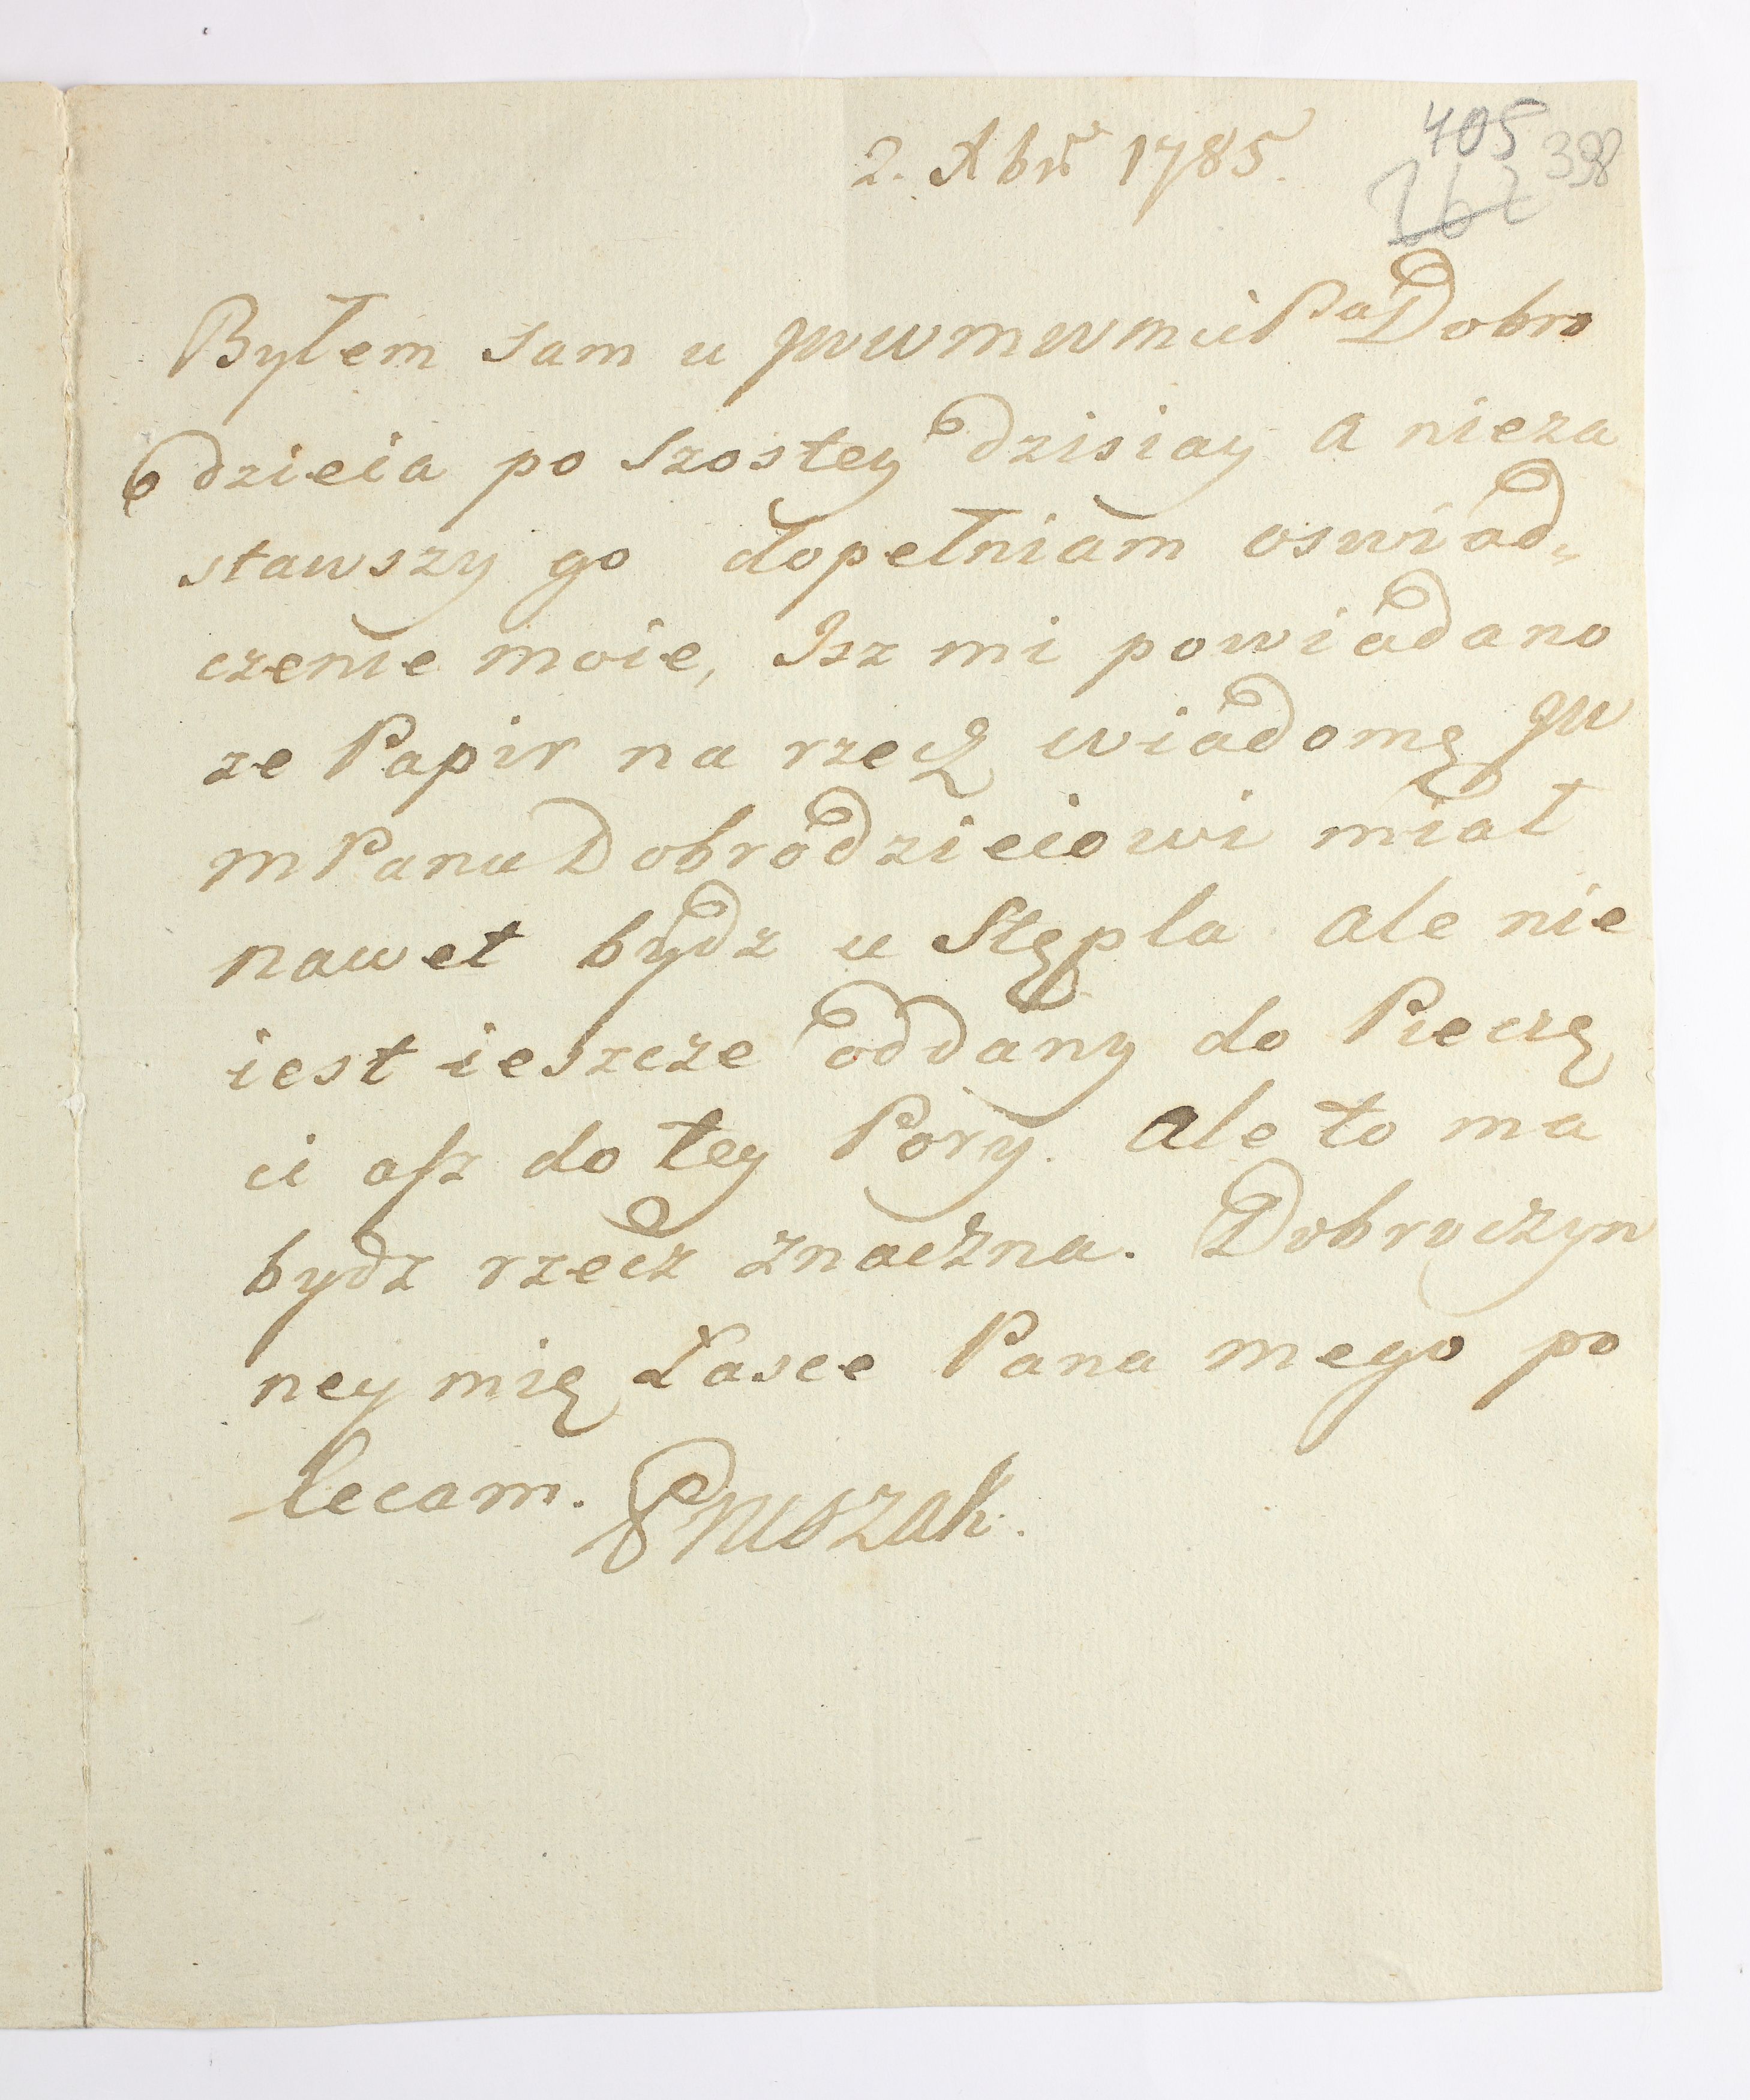 2. Xbrs 1785.
405
398
262
Byłem sam u JWWMWMci Pa Dobro
dzieia po Szostey dzisiay a nieza
stawszy go dopełniam oswiad„
czenie moie, Isz mi powiadano
ze Papir na rzecz wiadomę JW
m Panu Dobrodzieiowi miał
nawet bydz u Stępla ale nie
iest ieszcze oddany do Pieczę
ci asz do tey Pory. ale to ma
bydz rzecz znaczna. Dobroczyn
ney mię Łasce Pana mego po
lecam. Pruszak.